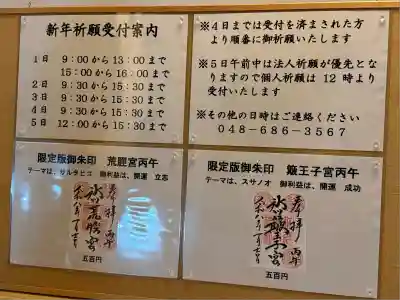 新年祈願受付案内
1日 9:00から13:00まで
15:00から16:00まで
2日 9:30から15:30まで
3日 9:30から15:30まで
4日 9:30から15:30まで
5日 12:00から15:30まで
※4日までは受付を済まされた方
より順番に御祈願いたします
※5日午前中は法人祈願が優先とな
りますので個人祈願は 12時より
受付いたします
※その他の日時はご連絡ください
048-686-3567
限定版御朱印 荒脛宮丙午
テーマは、サルタヒコ 御利益は、開運 立志
奉拝 丙午
五百円
限定版御朱印 簸王子宮丙午
テーマは、スサノオ 御利益は、開運 成功
奉拝 丙午
五百円